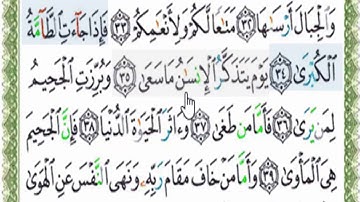 وَٱلْجِبَالَ أَرْسَىٰهَا ٣٢ مَتَٰعًا لَّكُمْ وَلِأَنْعَٰمِكُمْ ٣٣ فَإِذَا جَآءَتِ ٱلطَّآمَّةُ
ٱلْكُبْرَىٰ ٣٤ يَوْمَ يَتَذَكَّرُ ٱلْإِنسَٰنُ مَا سَعَىٰ ٣٥ وَبُرِّزَتِ ٱلْجَحِيمُ
لِمَن يَرَىٰ ٣٦ فَأَمَّا مَن طَغَىٰ ٣٧ وَءَاثَرَ ٱلْحَيَوٰةَ ٱلدُّنْيَا ٣٨ فَإِنَّ ٱلْجَحِيمَ
هِىَ ٱلْمَأْوَىٰ ٣٩ وَأَمَّا مَنْ خَافَ مَقَامَ رَبِّهِۦ وَنَهَى ٱلنَّفْسَ عَنِ ٱلْهَوَىٰ